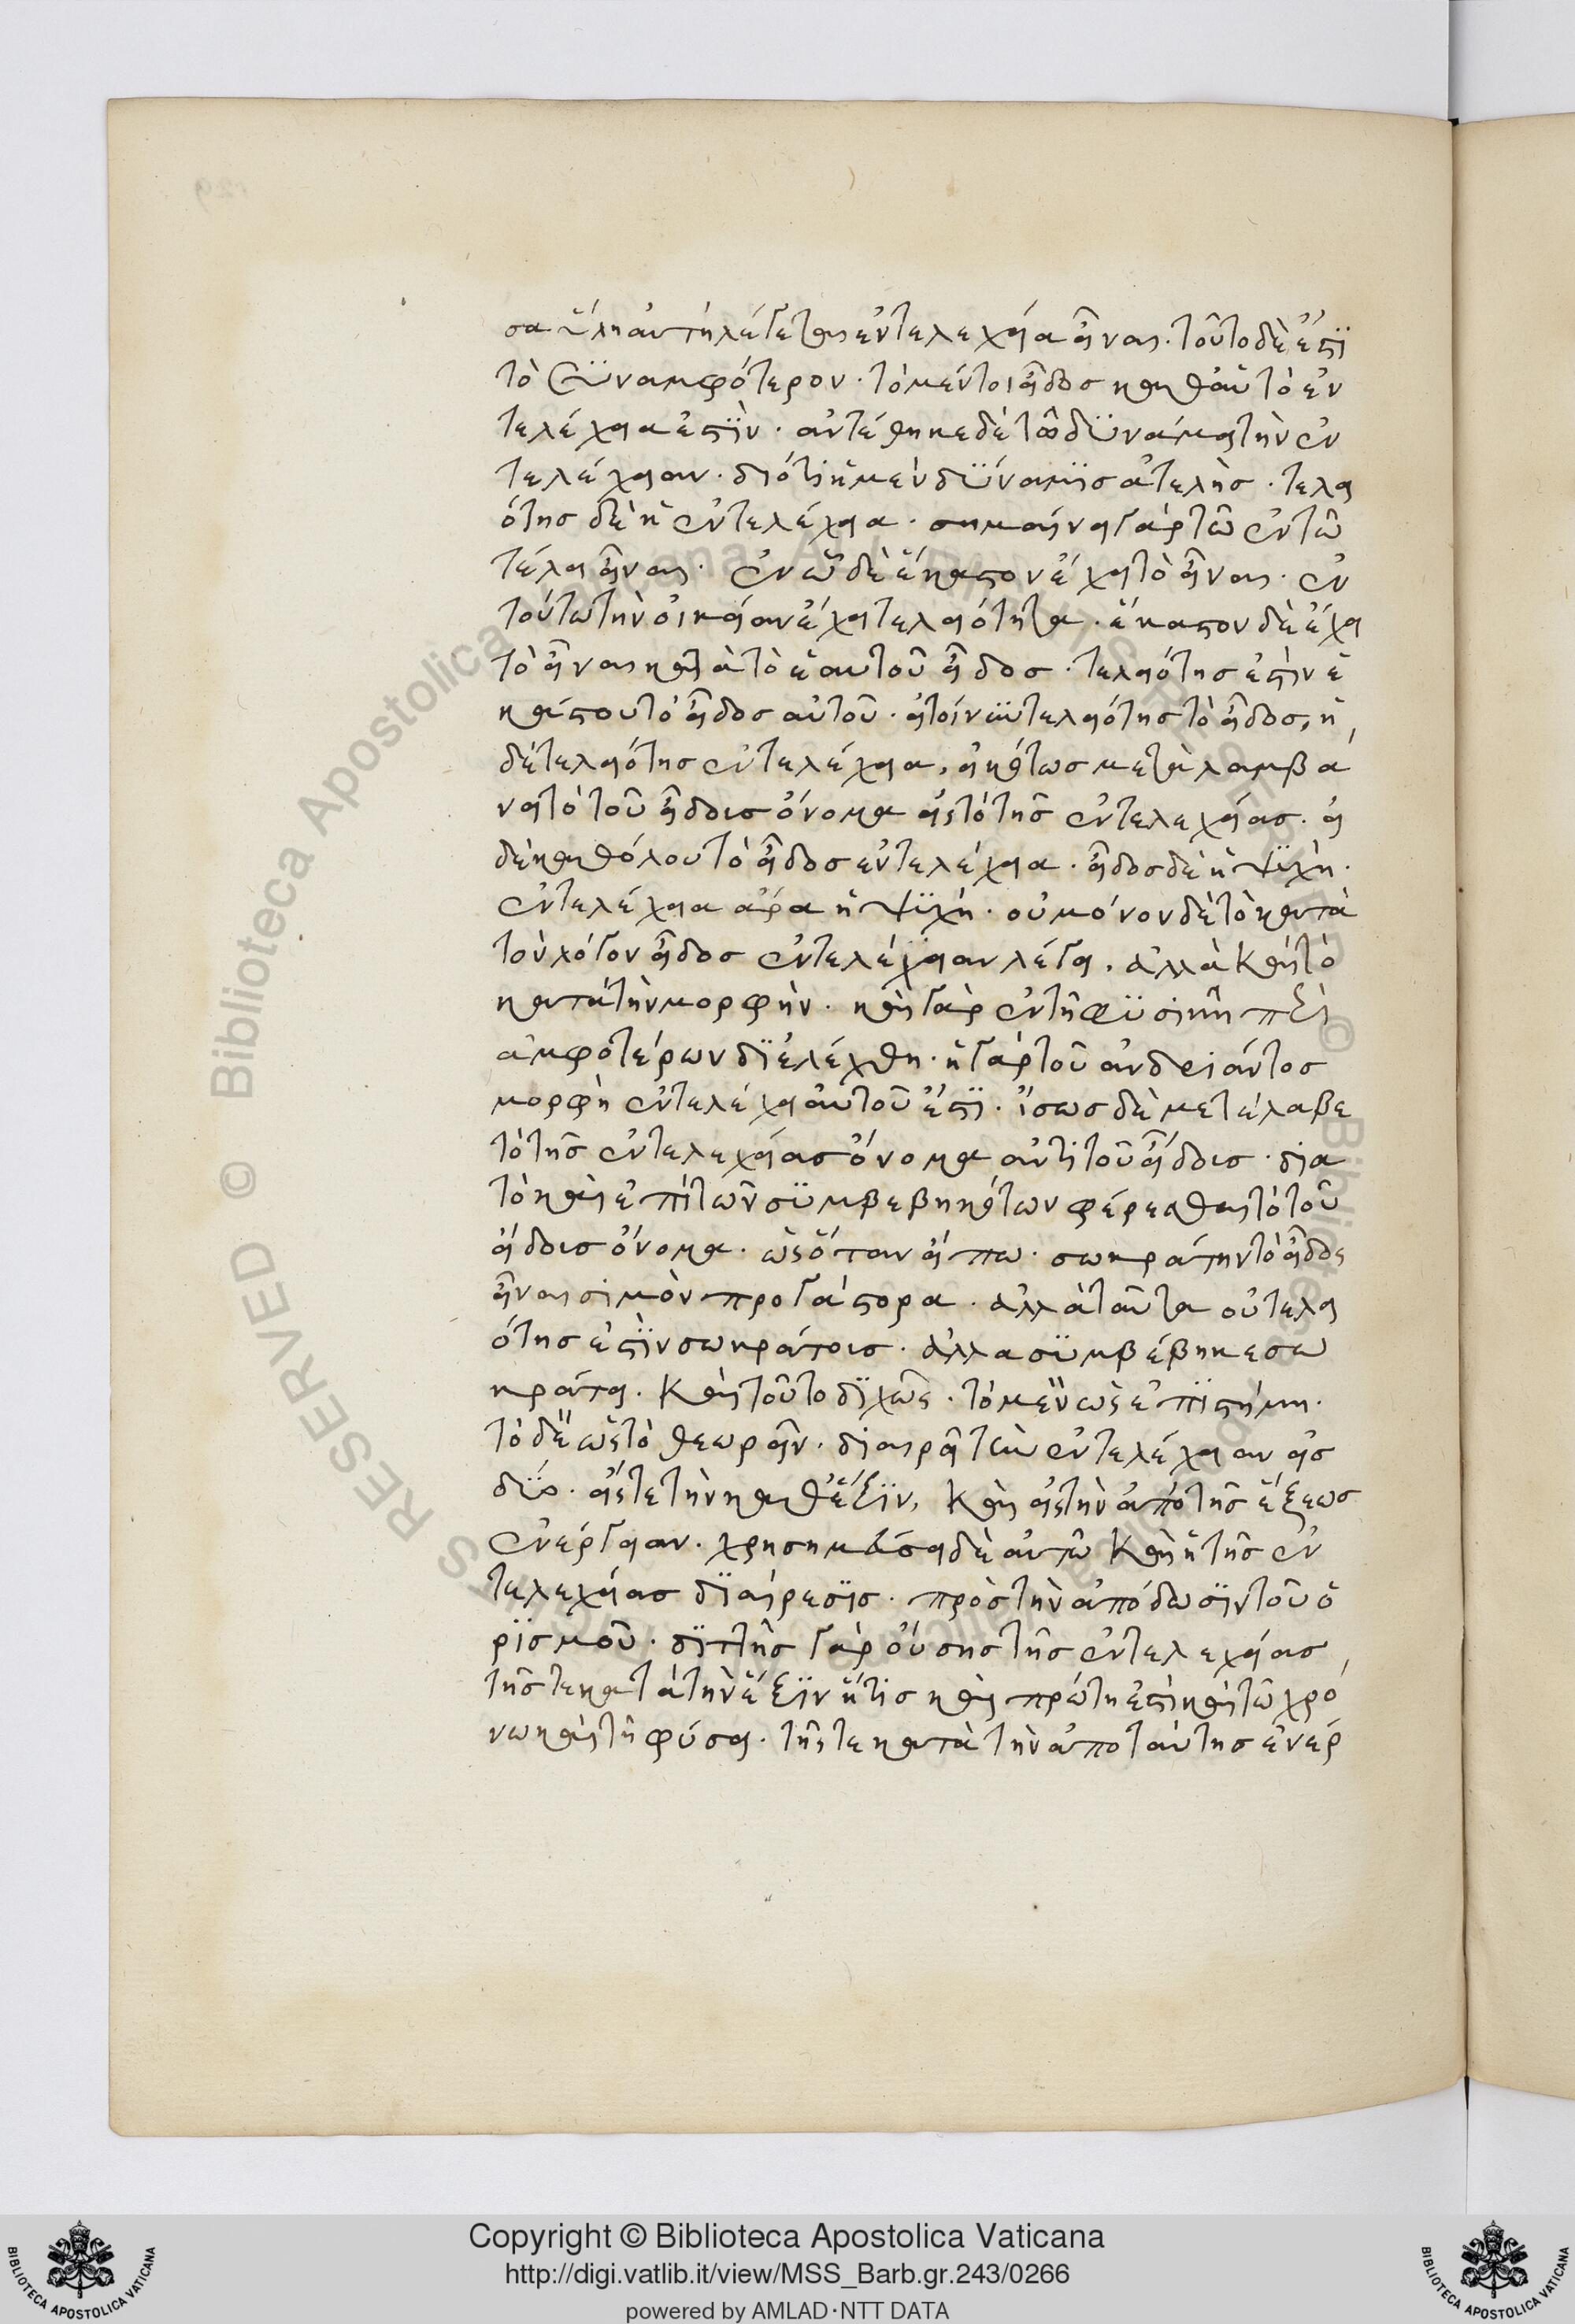 σα ὕλη αὐτὴ λέγεται ἐντελεχεία εἶναι. τοῦτο δὲ ἐστϊ
τὸ συναμφότερον. τὸ μέντοι εἶδος καθ᾽ αὑτὸ ἐν
τελέχεια ἐστϊν. ἀντέθηκε δὲ τῶ δϋνάμει τὴν ἐν
τελέχειαν. διότι ἡ μὲν δϋναμϊς ἀτελὴς. τελει
ότης δὲ ἡ ἐντελέχεια. σημαίνει γὰρ τῶ ἐν τῶ
τέλει εἶναι. ἐν ὧ δὲ ἕκαστον ἔχει τὸ εἶναι. ἐν
τούτω τὴν οἰκείαν ἔχει τελειότητα. ἕκαστον δὲ ἔχει
τὸ εἶναι κατὰ τὸ ἑαυτοῦ εἶδος. τελειότης ἐστὶν ἑ
κάστου τὸ εἶδος αὐτοῦ. εἰ τοίνυν τελειότης τὸ εἶδος, ἡ
δὲ τελειότης ἐντελέχεια, εἰκότως μεταλαμβά
νει τὸ τοῦ εἴδους ὄνομα εἰς τὸ τῆς ἐντελεχείας. εἰ
δὲ καθόλου τὸ εἶδος ἐντελέχεια. εἶδος δὲ ἡ ψϋχὴ.
ἐντελέχεια ἄρα ἡ ψϋχή. οὐ μόνον δὲ τὸ κατὰ
τὸν λόγον εἶδος ἐντελέχειαν λέγει. ἀλλὰ καὶ τὸ
κατὰ τὴν μορφὴν. καὶ γὰρ ἐν τῆ φϋσικῆ περὶ
ἀμφοτέρων δϊελέχθη. ἡ γὰρ τοῦ ἀνδριάντος
μορφὴ ἐντελέχεια αὐτοῦ ἐστϊ. ἴσως δὲ μετέλαβε
τὸ τῆς ἐντελεχείας ὄνομα ἀντὶ τοῦ εἴδους. δια
τὸ καὶ ἐπὶ τῶν σϋμβεβηκότων φέρεσθαι τὸ τοῦ
εἴδους ὄνομα. ὡς ὅταν εἴπω. σωκράτην τὸ εἶδος
εἶναι σιμὸν προγάστορα. ἀλλὰ ταῦτα οὐ τελει
ότης ἐστϊν σωκράτους. ἀλλα σϋμβέβηκε σω
κράτει. καὶ τοῦτο δϊχῶς. τὸ μὲν ὡς ἐπϊστήμη.
τὸ δὲ ὡς τὸ θεωρεῖν. διαιρεῖ τὴν ἐντελέχειαν εἰς
δϋο. εἴς τε τὴν καθ᾽ ἕξϊν, καὶ εἰς τὴν ἀπὸ τῆς ἕξεως
ἐνέργειαν. χρησημεύσει δὲ αὐτῶ καὶ ἡ τῆς ἐν
τελεχείας δϊαίρεσϊς. πρὸς τὴν ἀπόδωσϊν τοῦ ὁ
ρϊσμοῦ. δϊττῆς γὰρ οὔσης τῆς ἐντελεχείας,
τῆς τε κατὰ τὴν ἕξϊν ἥτις καὶ πρώτη ἐστὶ καὶ τῶ χρό
νω καὶ τῆ φύσει. τῆς τε κατὰ τὴν ἀπὸ ταύτης ἐνέρ
Copyright © Biblioteca Apostolica Vaticana
http://digi.vatlib.it/view/MSS_Barb.gr.243/0266
powered by AMLAD·NTT DATA